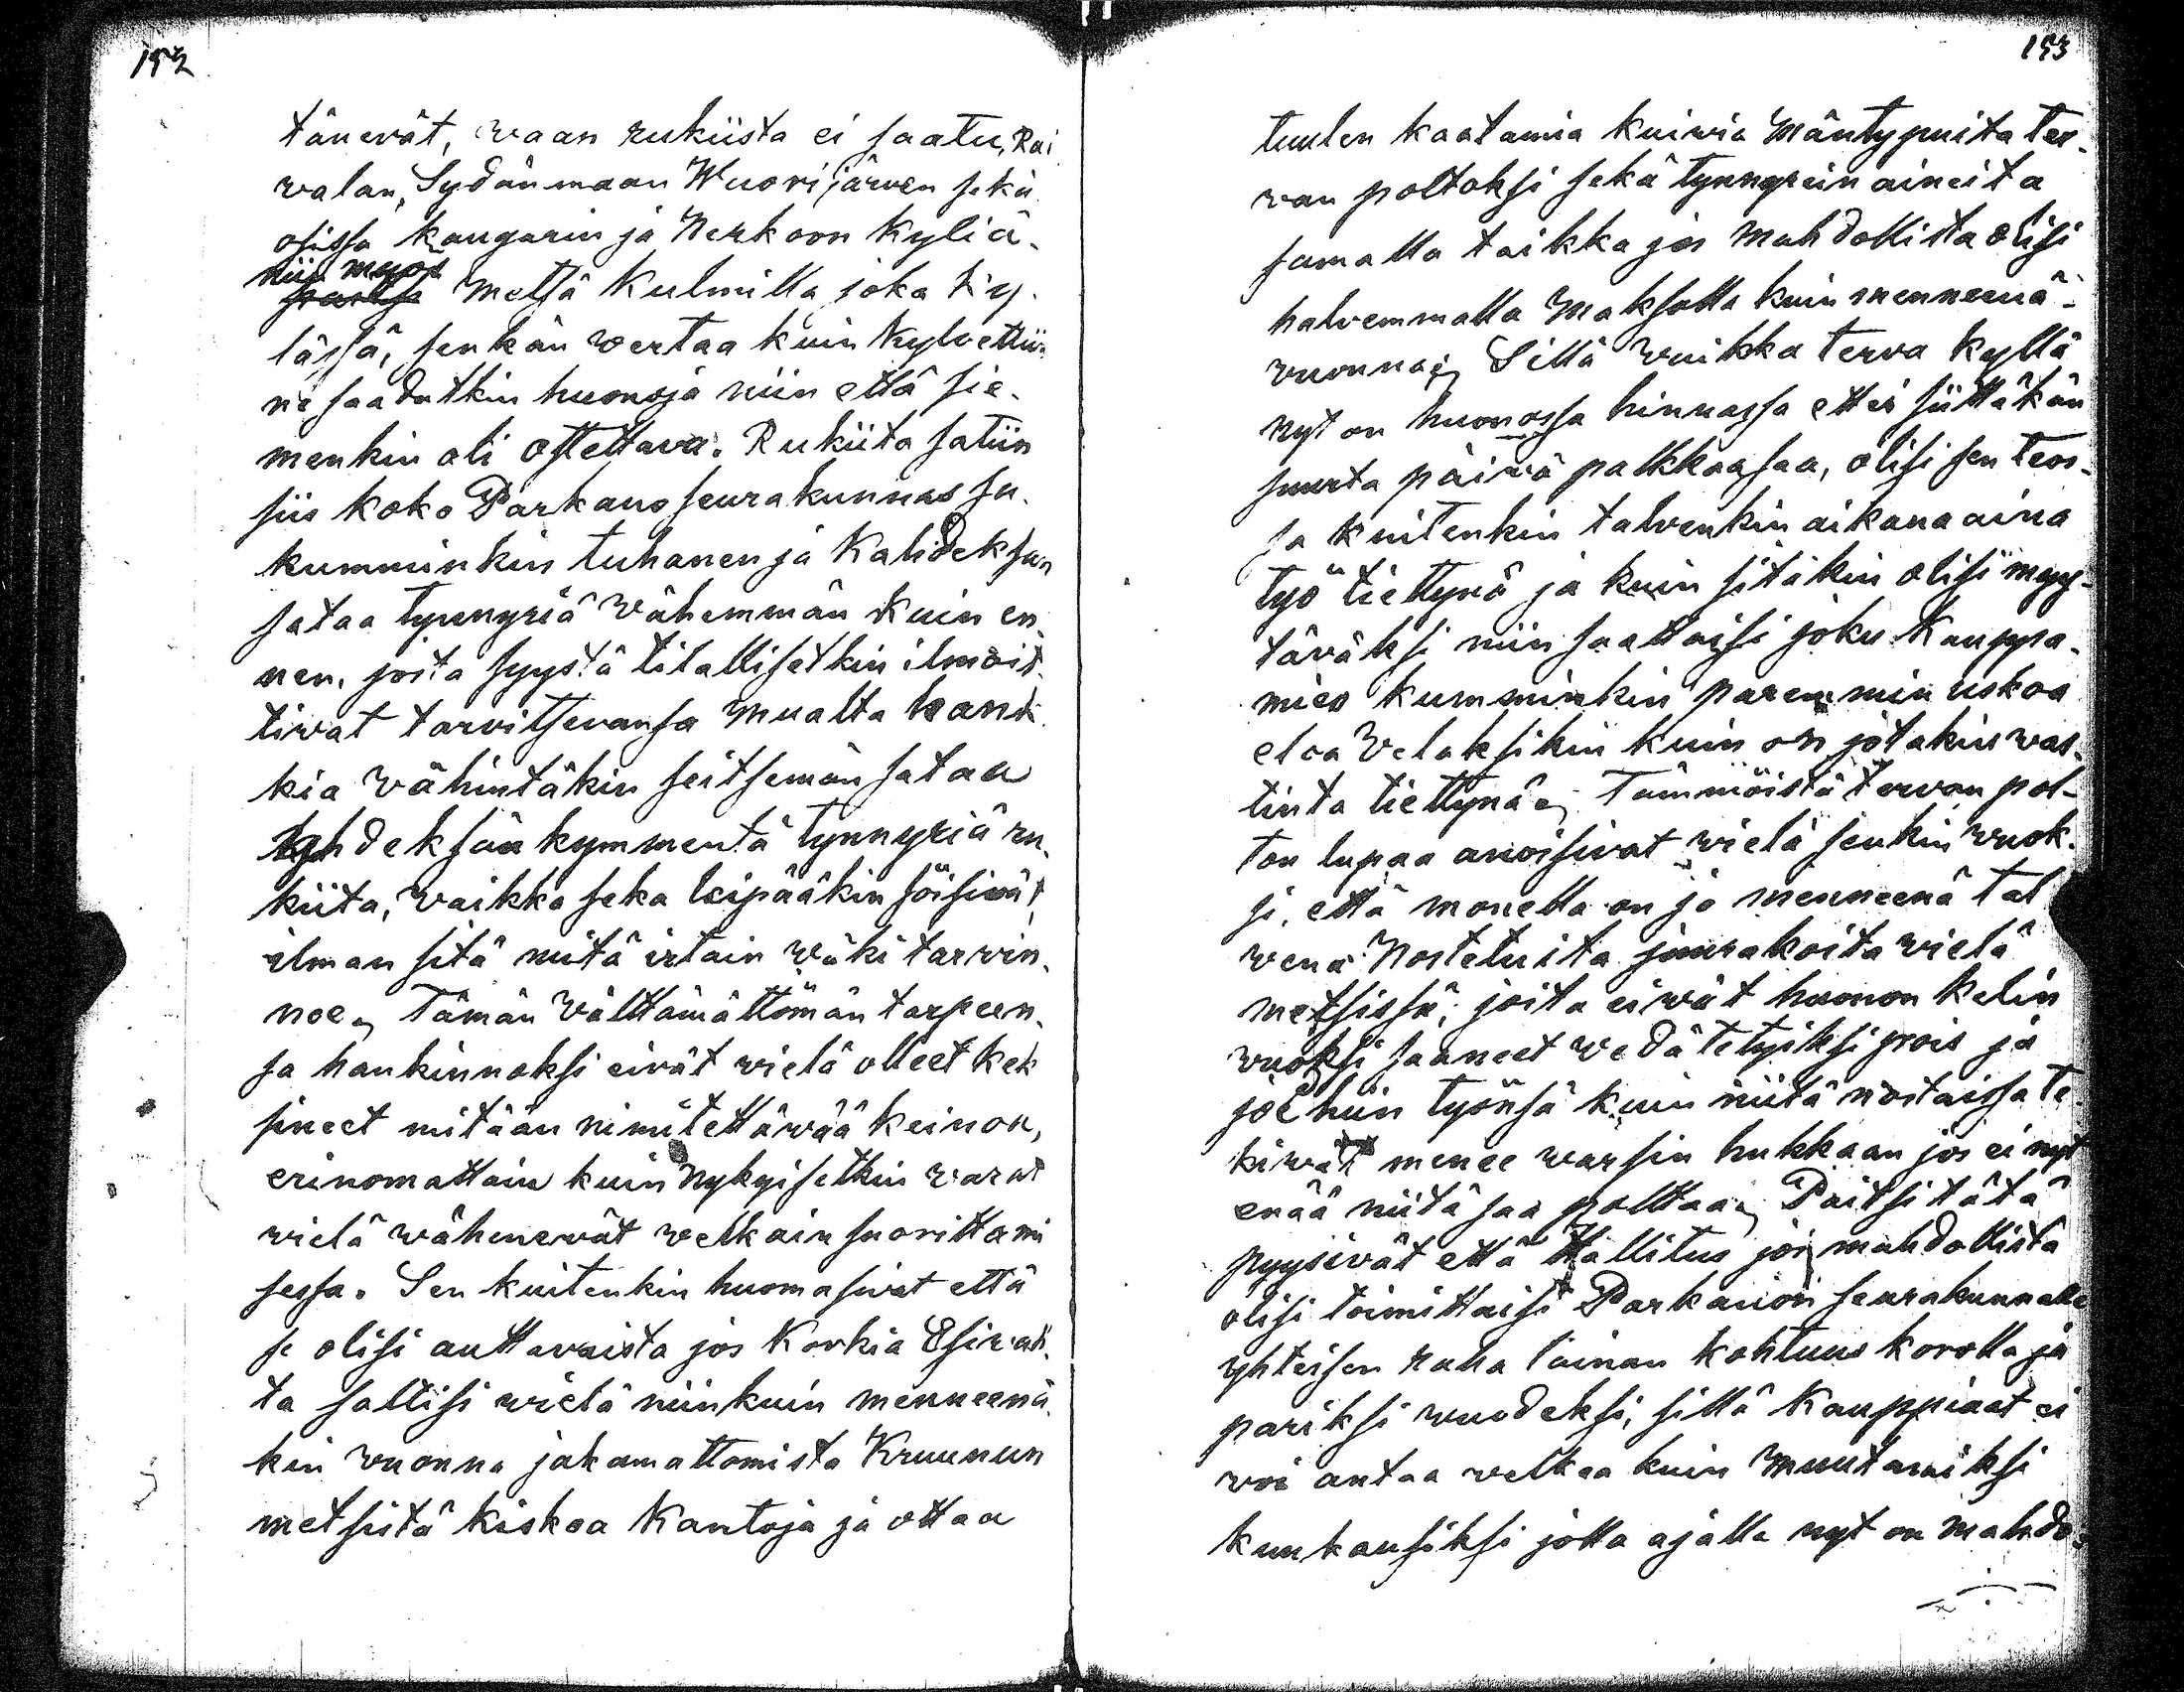 152
tänevät, waan rukiista ei saatu, Rai
walan, Sydänmaan Wuorijärven sekä
osissa kangarin ja Nerkoon kyliä.
niin myös
metsä kulmilla joka ky-
lässä, senkän vertaa kuin kylvettiin
ne saadutkin huonoja niin että sie-
menkin oli ostettava. Rukiita satiin
siis koko Parkano seurakunnassa
kumminkin tuhanen ja kahdeksan
sataa tynnyriä vähemmän kuin en-
nen, josta syystä tilallisetkin ilmoit-
tivat tarvitsevansa mualta hank-
kia vähintäkin seitsemän sataa
yhdeksän kymmentä tynnyriä ru-
kiita, vaikka seka leipääkin söisivät,
ilman sitä mitä irtain wäki tarvin-
nee, Tämän välttämättömän tarpeen-
sa hankinnoksi eivät vielä olleet kek
sineet mitään nimitettävää keinoa,
erinomattain kuin nykyisetkin varat
vielä wähenevät velkain suorittami
sessa. Sen kuitenkin huomasivat että
se olisi auttavaista jos Korkia Esival-
ta sallisi vielä niinkuin menneenä-
kin vuonna jakamattomista Kruunun
metsistä kiskoa Kantoja ja ottaa
153
tuulen kaatamia kuivia mäntypuita ter-
van poltoksi sekä tynnyrein aineita
samalla taikka jos mahdollista olisi
halvemmalla maksolla kuin menneenä-
vuonna, Sillä vaikka terva kyllä
nyt on huonossa hinnassa ettei siittäkän
suurta päivä palkkaa saa, olisi sen teos-
sa kuitenkin talvenkin aikana aina
työ tiettynä ja kuin sitäkin olisi myy-
täväksi niin saattaisi joku Kauppa-
mies kumminkin paremmin uskoa
eloa Velaksikin kuin on jotakin vas-
tinta tiettynä, Tämmöistä tervan pol-
ton lupaa anoisivat vielä senkin vuok-
si, että monella on jo menneenä tal
vena Nostetuita juurakoita vielä
metsissä, joita eivät huonon kelin
vuoksi saaneet vedätetyiksi pois ja
joihin työnsä kuin niitä nostaissa te-
kivät menee varsin hukkaan jos ei nyt
enää niitä saa polttaa, Paitsi tätä
pyysivät että Hallitus jos mahdollista
olisi toimittaisi Parkanon seurakunnalle
yhteisen raha lainan kohtuus korolla ja
pariksi vuodeksi, sillä Kauppiaat ei
voi antaa velkaa kuin muutamiksi
kuukausiksi jolla ajalla nyt on mahdo-